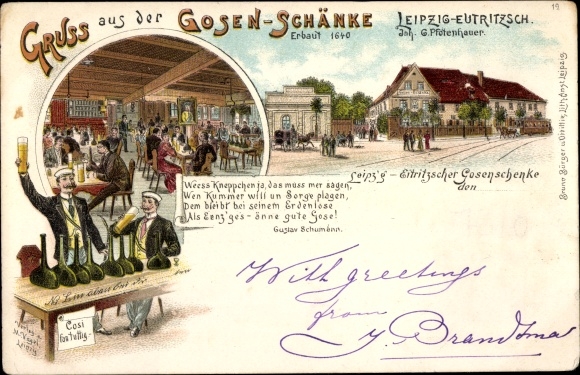 Gruss aus der Gosen-Schänke
Erbaut 1640
Leipzig-Eutritzsch.
Inh. G. Pfotenhauer.
19
Leipz'g – Eitritzscher Gosenschenke
den
Weess Kneppchen ja, das muss mer sagen,
Wen Kummer will un Sorge plagen,
Dem bleibt bei seinem Erdenlose
Als Eenz'ges – änne gute Gose!
Gustav Schumann.
Cosi
fan tutti.
Verlag
M. Vogel
Leipzig
Bruno Bürger u. Ottillie, Lith. Anst. Leipzig
With greetings
from
J. Brandsma